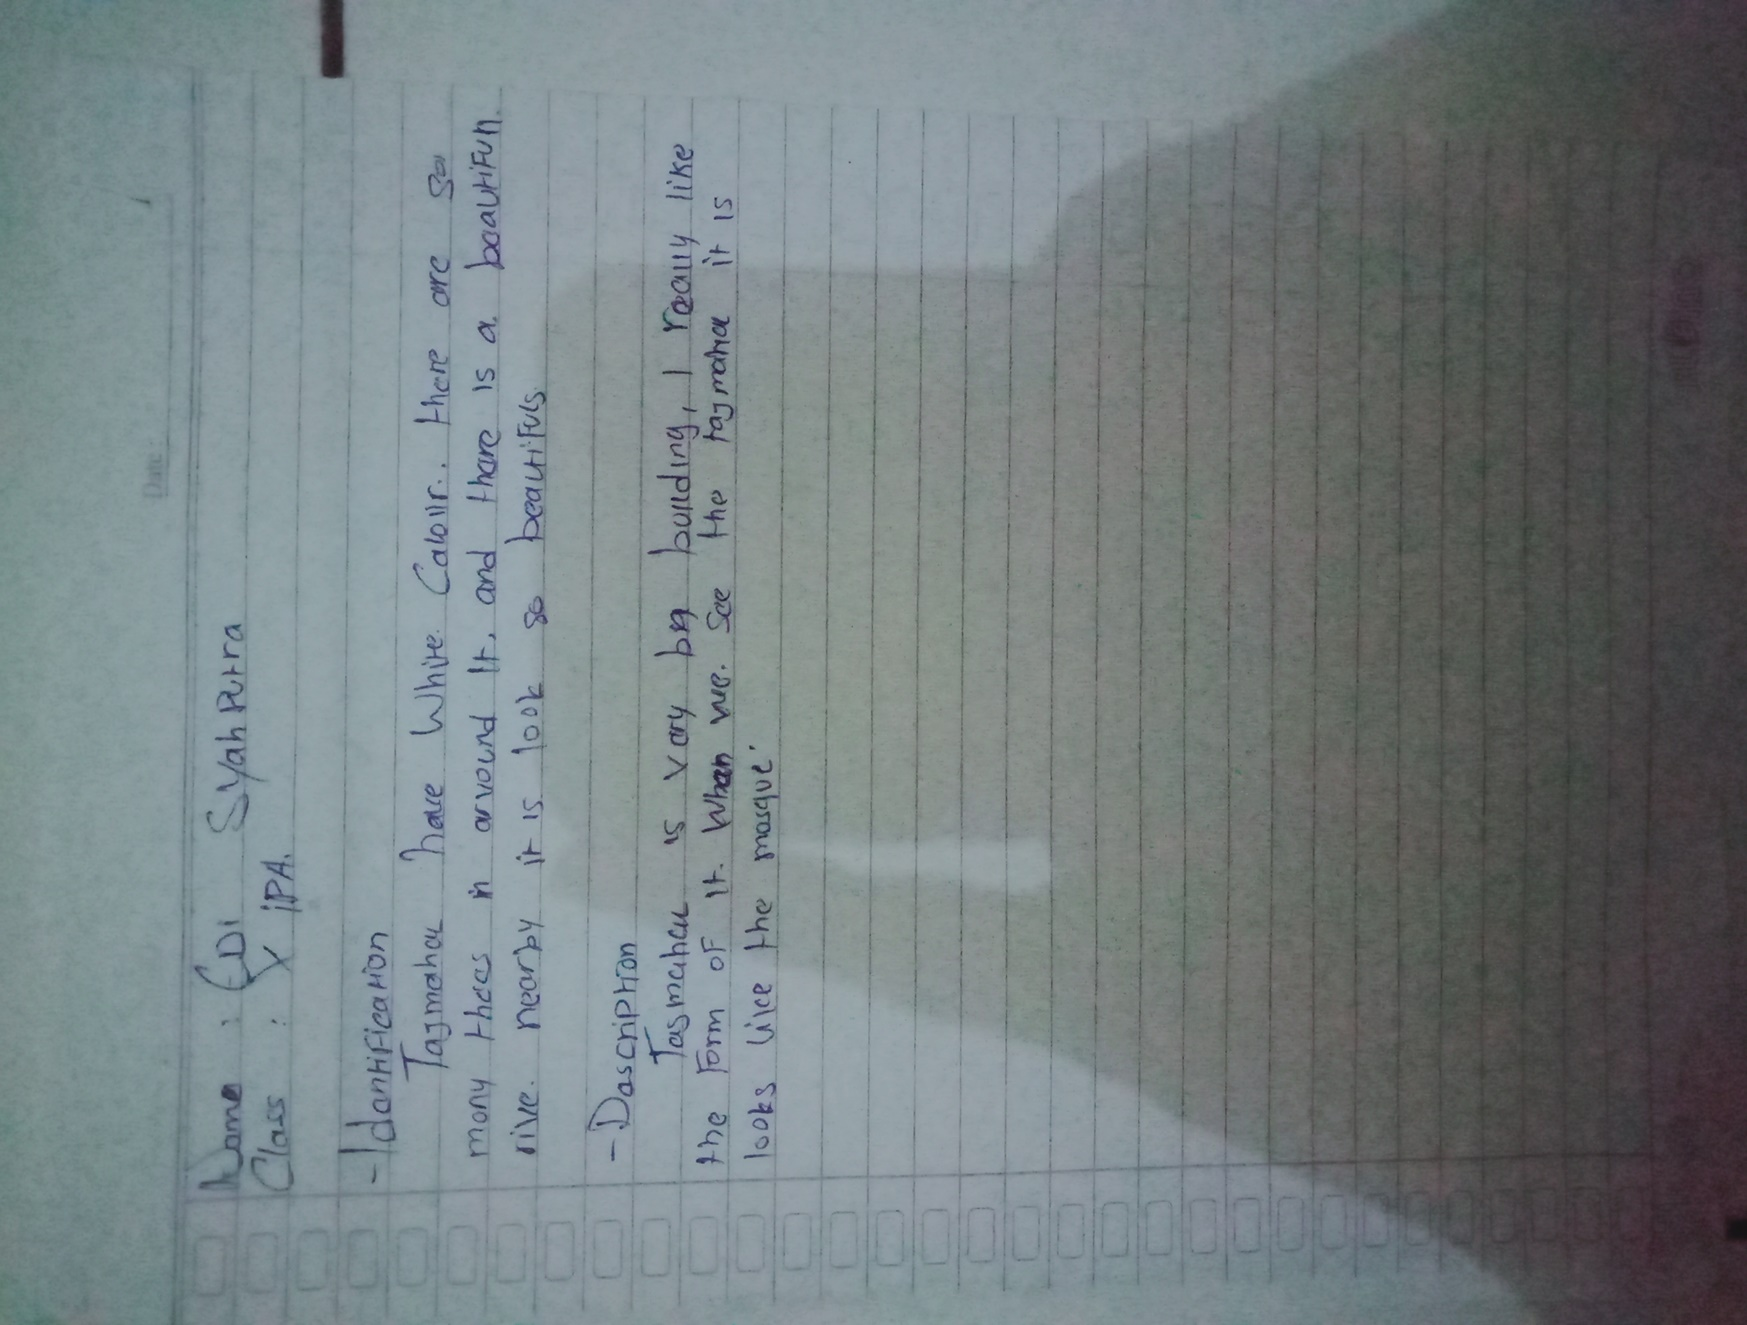 Date:
Name : EDI SyahPutra
Class : X IPA.
- Idantification
Tajmahal have White Calour. there are so
mony thees in arvound It, and thare is a baautifun
rive. nearby it is look so beautifuls
- Dascription
Tasmahal is vary big building, I really like
the Form of It. Whan we. See the tajmahal it is
looks like the mosque.